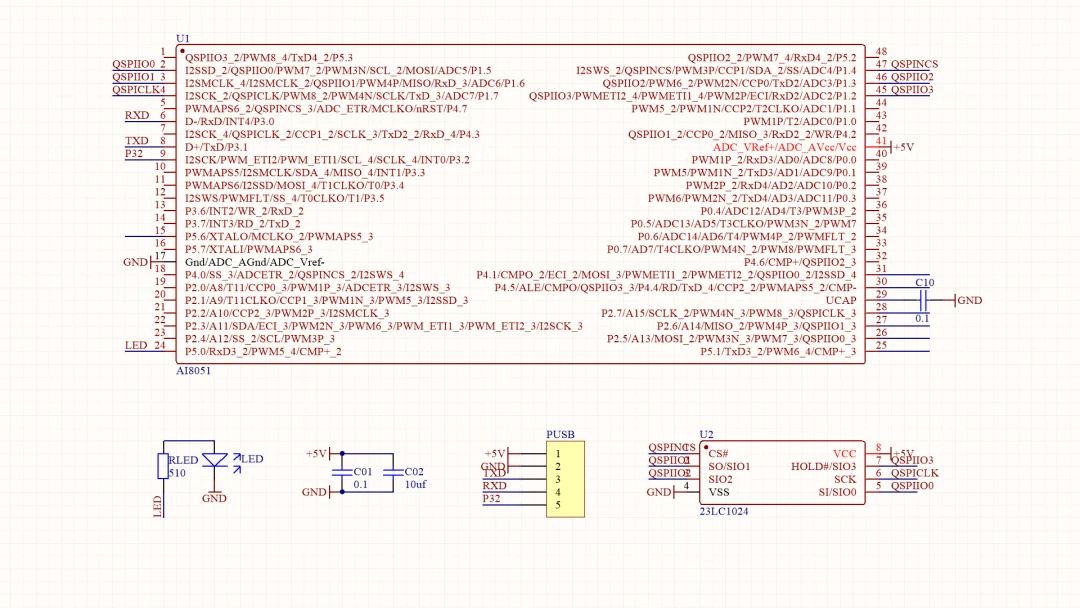 U1
1 QSPIIO3_2/PWM8_4/TxD4_2/P5.3 QSPIIO2_2/PWM7_4/RxD4_2/P5.2 48
QSPIIO0 2 I2SSD_2/QSPIIO0/PWM7_2/PWM3N/SCL_2/MOSI/ADC5/P1.5 I2SWS_2/QSPINCS/PWM3P/CCP1/SDA_2/SS/ADC4/P1.4 47 QSPINCS
QSPIIO1 3 I2SMCLK_4/I2SMCLK_2/QSPIIO1/PWM4P/MISO/RxD_3/ADC6/P1.6 QSPIIO2/PWM6_2/PWM2N/CCP0/TxD2/ADC3/P1.3 46 QSPIIO2
QSPICLK 4 I2SCK_2/QSPICLK/PWM8_2/PWM4N/SCLK/TxD_3/ADC7/P1.7 QSPIIO3/PWMETI2_4/PWMETI1_4/PWM2P/ECI/RxD2/ADC2/P1.2 45 QSPIIO3
5 PWMAPS6_2/QSPINCS_3/ADC_ETR/MCLKO/nRST/P4.7 PWM5_2/PWM1N/CCP2/T2CLKO/ADC1/P1.1 44
RXD 6 D-/RxD/INT4/P3.0 PWM1P/T2/ADC0/P1.0 43
7 I2SCK_4/QSPICLK_2/CCP1_2/SCLK_3/TxD2_2/RxD_4/P4.3 QSPIIO1_2/CCP0_2/MISO_3/RxD2_2/WR/P4.2 42
TXD 8 D+/TxD/P3.1 ADC_VRef+/ADC_AVcc/Vcc 41 +5V
P32 9 I2SCK/PWM_ETI2/PWM_ETI1/SCL_4/SCLK_4/INT0/P3.2 PWM1P_2/RxD3/AD0/ADC8/P0.0 40
10 PWMAPS5/I2SMCLK/SDA_4/MISO_4/INT1/P3.3 PWM5/PWM1N_2/TxD3/AD1/ADC9/P0.1 39
11 PWMAPS6/I2SSD/MOSI_4/T1CLKO/T0/P3.4 PWM2P_2/RxD4/AD2/ADC10/P0.2 38
12 I2SWS/PWMFLT/SS_4/T0CLKO/T1/P3.5 PWM6/PWM2N_2/TxD4/AD3/ADC11/P0.3 37
13 P3.6/INT2/WR_2/RxD_2 P0.4/ADC12/AD4/T3/PWM3P_2 36
14 P3.7/INT3/RD_2/TxD_2 P0.5/ADC13/AD5/T3CLKO/PWM3N_2/PWM7 35
15 P5.6/XTALO/MCLKO_2/PWMAPS5_3 P0.6/ADC14/AD6/T4/PWM4P_2/PWMFLT_2 34
16 P5.7/XTALI/PWMAPS6_3 P0.7/AD7/T4CLKO/PWM4N_2/PWM8/PWMFLT_3 33
GND 17 Gnd/ADC_AGnd/ADC_Vref- P4.6/CMP+/QSPIIO2_3 32
18 P4.0/SS_3/ADCETR_2/QSPINCS_2/I2SWS_4 P4.1/CMPO_2/ECI_2/MOSI_3/PWMETI1_2/PWMETI2_2/QSPIIO0_2/I2SSD_4 31
19 P2.0/A8/T11/CCP0_3/PWM1P_3/ADCETR_3/I2SWS_3 P4.5/ALE/CMPO/QSPIIO3_3/P4.4/RD/TxD_4/CCP2_2/PWMAPS5_2/CMP- 30 C10
20 P2.1/A9/T11CLKO/CCP1_3/PWM1N_3/PWM5_3/I2SSD_3 UCAP 29 GND
21 P2.2/A10/CCP2_3/PWM2P_3/I2SMCLK_3 P2.7/A15/SCLK_2/PWM4N_3/PWM8_3/QSPICLK_3 28
22 P2.3/A11/SDA/ECI_3/PWM2N_3/PWM6_3/PWM_ETI1_3/PWM_ETI2_3/I2SCK_3 P2.6/A14/MISO_2/PWM4P_3/QSPIIO1_3 27 0.1
23 P2.4/A12/SS_2/SCL/PWM3P_3 P2.5/A13/MOSI_2/PWM3N_3/PWM7_3/QSPIIO0_3 26
LED 24 P5.0/RxD3_2/PWM5_4/CMP+_2 P5.1/TxD3_2/PWM6_4/CMP+_3 25
AI8051
RLED
510
LED
GND
LED
+5V
C01
0.1
C02
10uf
GND
PUSB
+5V 1
GND 2
TXD 3
RXD 4
P32 5
U2
QSPINCS CS# VCC 8 +5V
QSPIIO1 SO/SIO1 HOLD#/SIO3 7 QSPIIO3
QSPIIO2 SIO2 SCK 6 QSPICLK
GND 4 VSS SI/SIO0 5 QSPIIO0
23LC1024